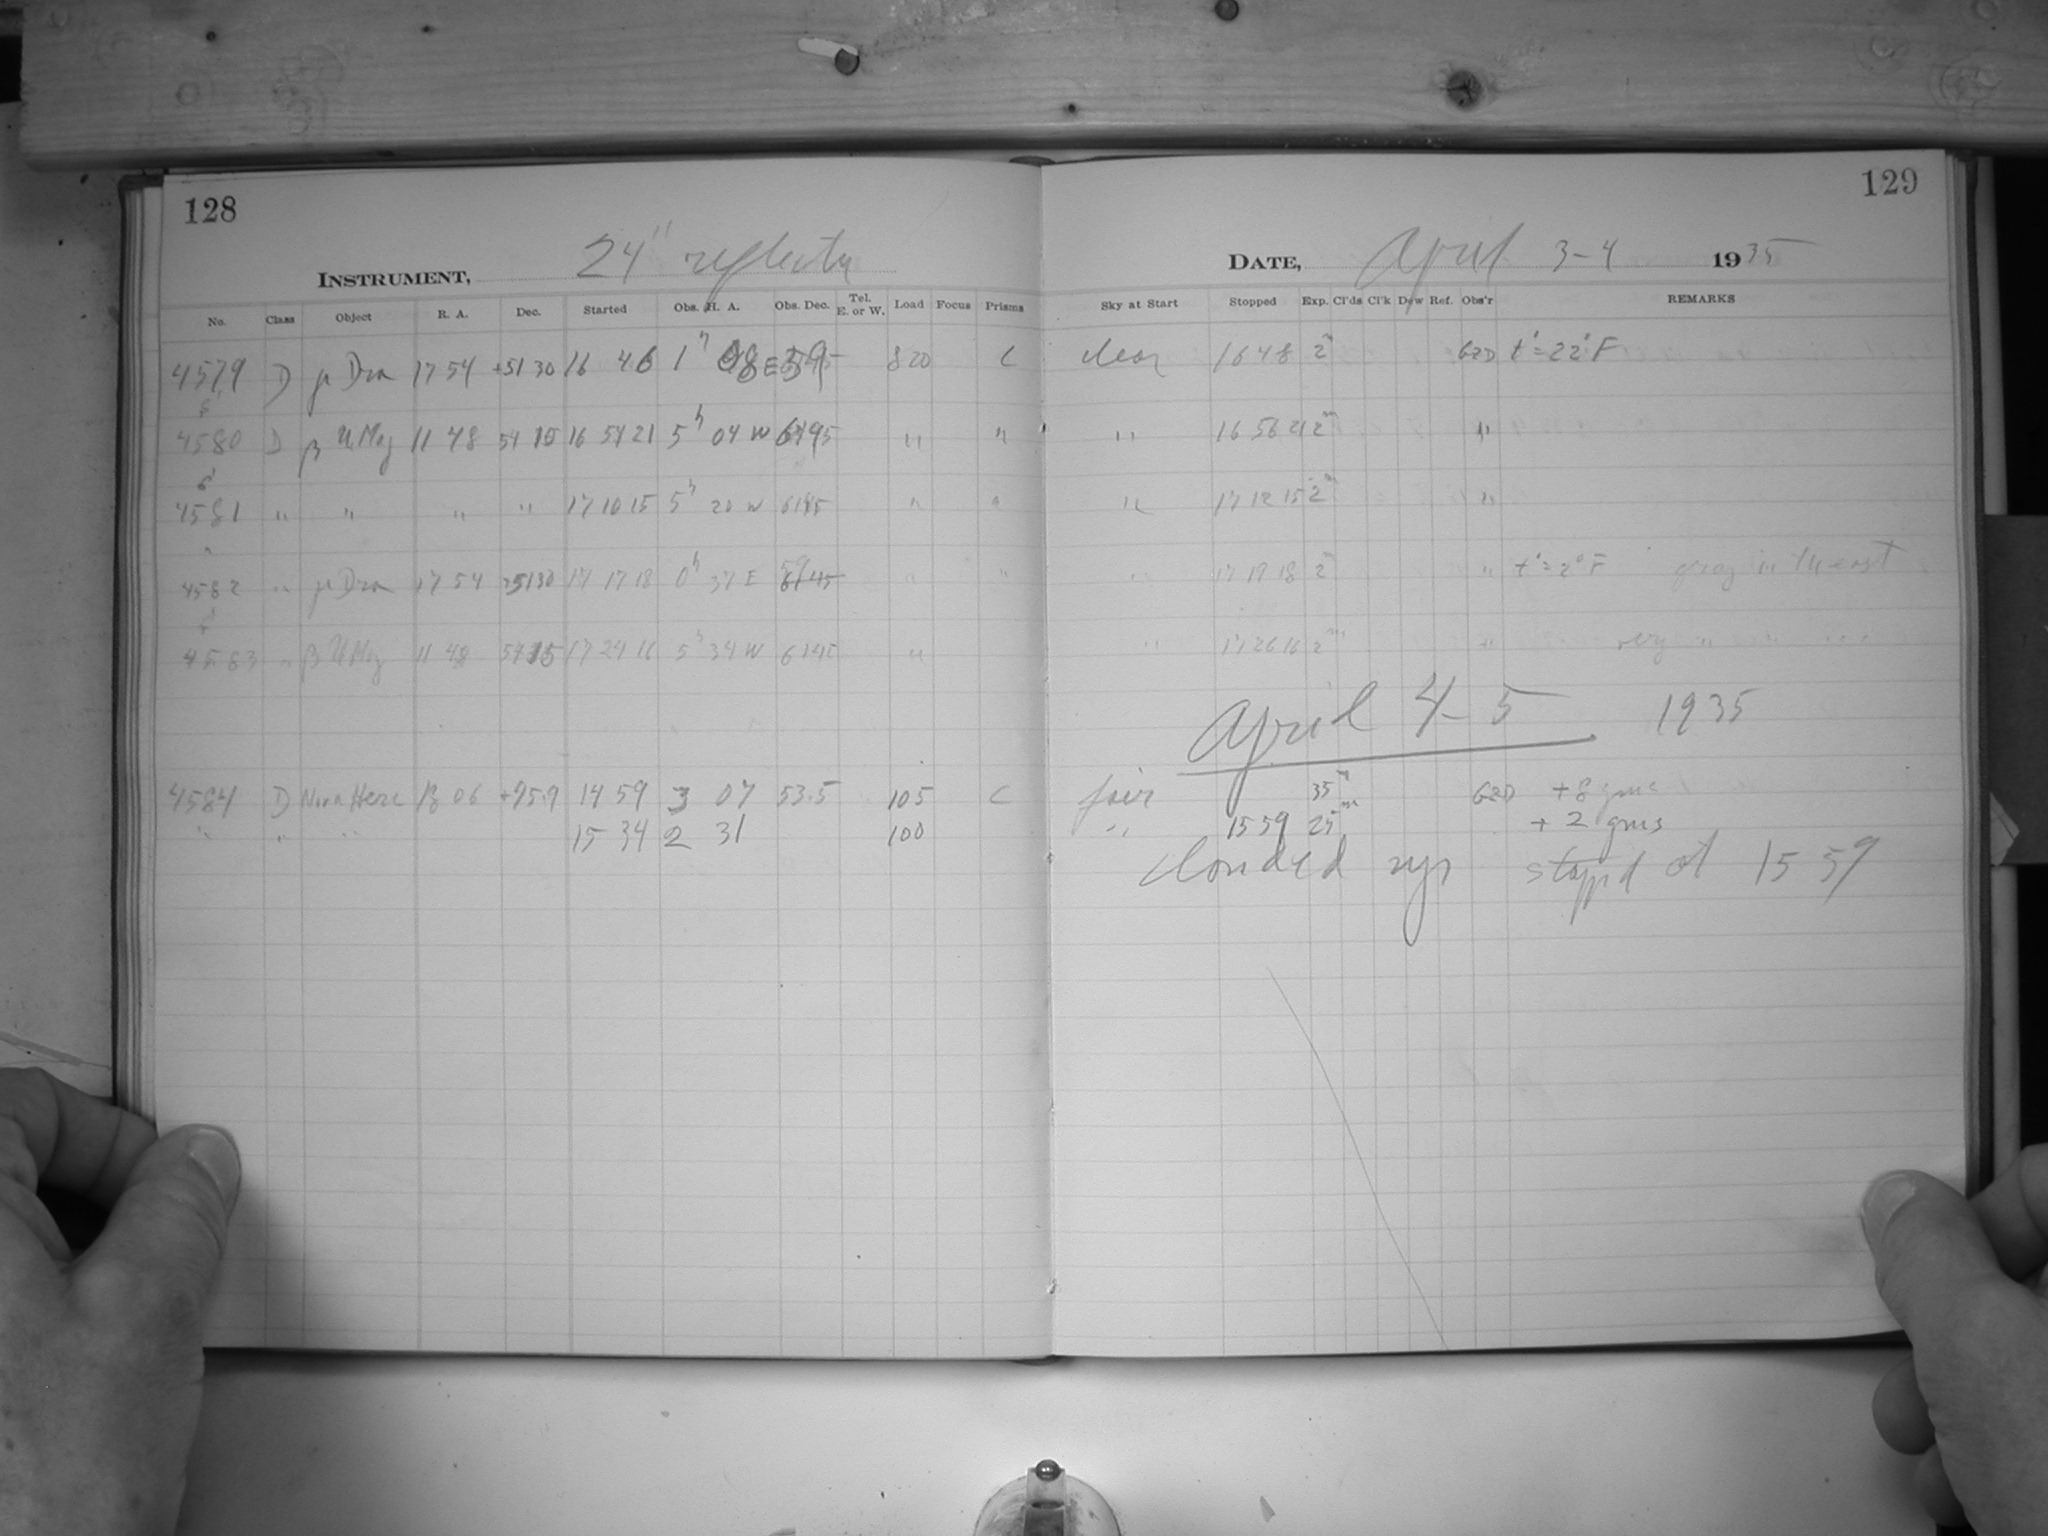 128
129
INSTRUMENT, 24" reflector
DATE, April 3-4 1935
No. Class Object R. A. Dec. Started Obs. H. A. Obs. Dec. Tel. E. or W. Load Focus Prisms Sky at Start Stopped Exp. Cl'ds Cl'k Dew Ref. Obs'r REMARKS
4579 D μ Dra 17 54 +51 30 16 46 1h 08 E 820 C clear 16 48 2m t'=22°F
4580 D β U Maj 11 48 54 15 16 54 21 5h 04 W " " " 16 56 21 2m "
4581 " " " " 17 10 15 5h 20 W " " " 17 12 15 2m "
4582 " μ Dra 17 54 5130 17 17 18 0h 37 E " " " 17 19 18 2m " gray in the east
4583 " β U Maj 11 48 54 15 17 24 16 5h 34 W 6145 " " 17 26 16 2m " very " " "
April 4-5 1935
4584 D Nova Herc 18 06 +45.9 14 59 3 07 53.5 105 C fair 35m +8 gms
" " " 15 34 2 31 100 " 15 59 25m + 2 gms
clouded up stoppd at 15 59